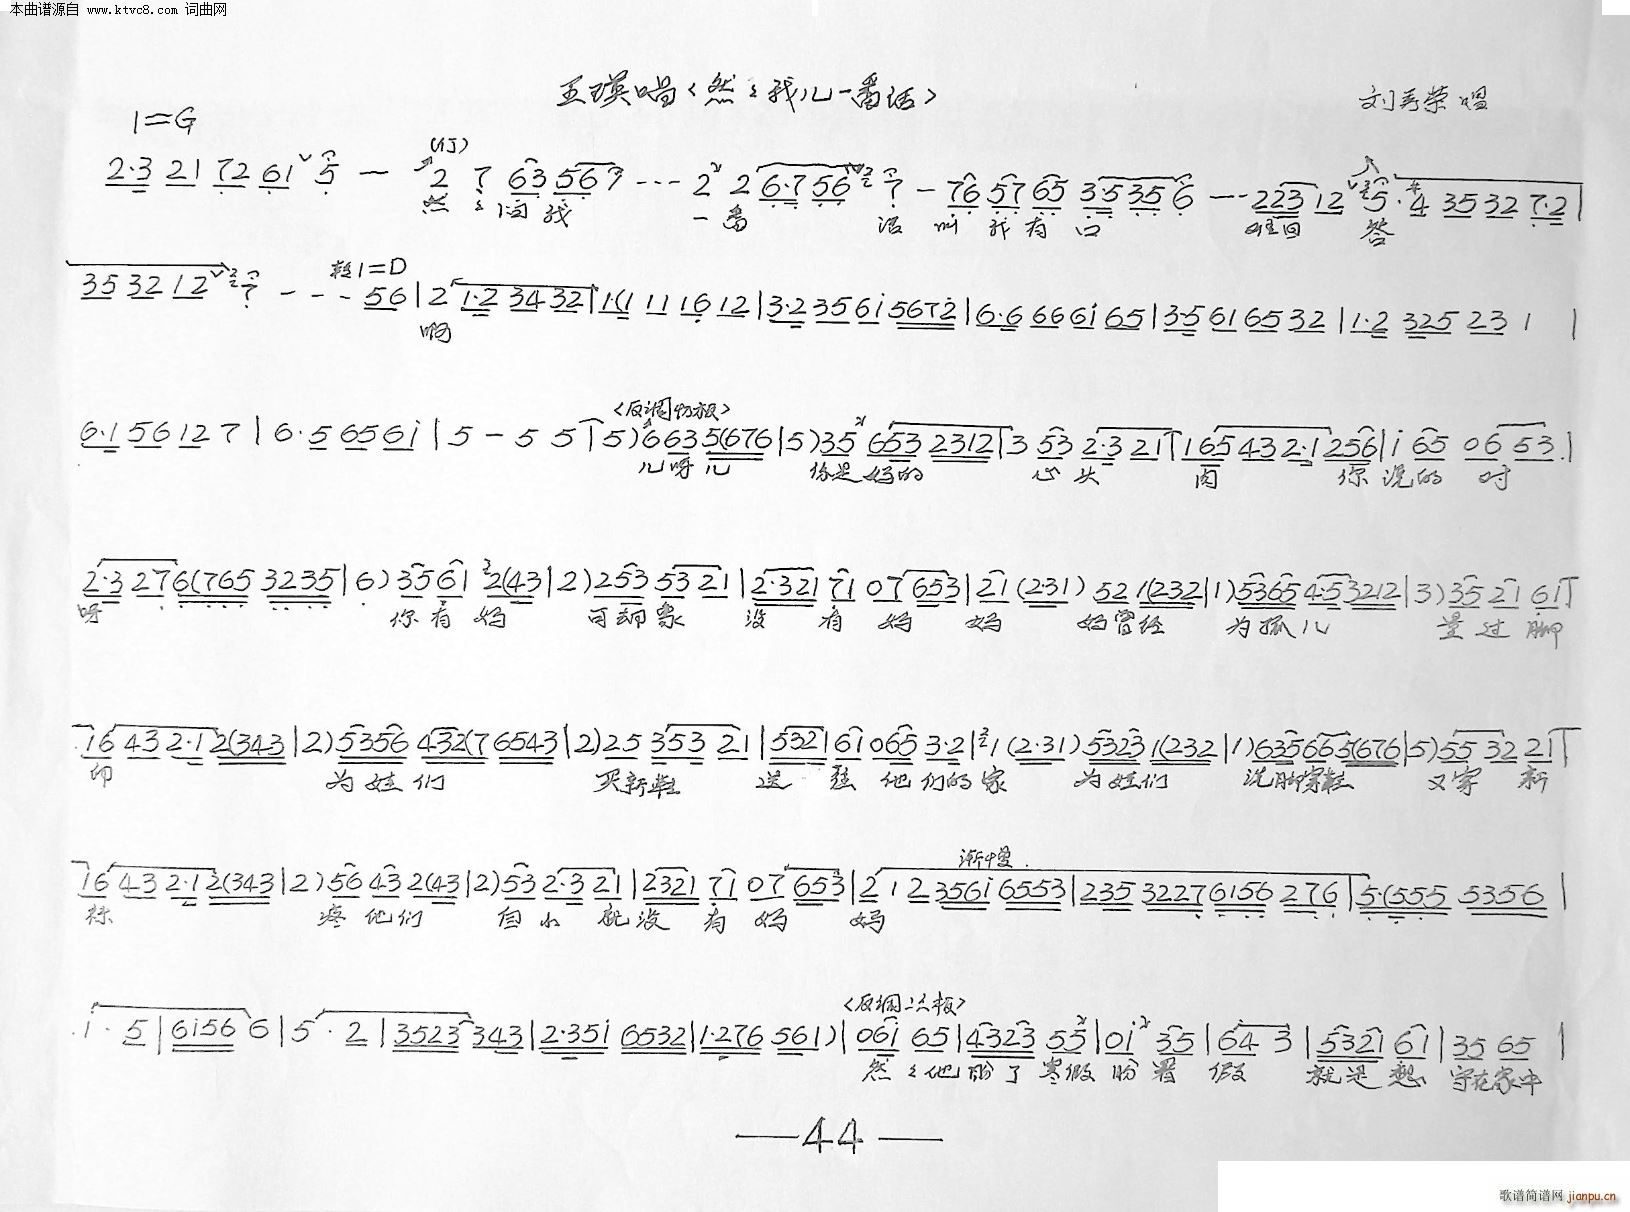 本曲谱源自 www.ktvc8.com 词曲网
王瑛唱〈然〻我儿一番话〉
1=G
2·3 21 72 61 5 — 2 7 63 567 --- 2 2 6·7 56 7 — 76 57 65 3·5 35 6 --- 223 12 5·4 35 32 7·2 |
然〻问我 一番 话 叫我有口 难回 答
35 32 12 7 - - - 转1=D 56 | 2 1·2 34 32 | 1·(1 11 16 12 | 3·2 35 6i 5672 | 6·6 66 6i 65 | 3·5 61 65 32 | 1·2 325 23 1 |
啊
6·1 56 12 7 | 6·5 65 6i | 5 - 5 5 | 5) 6 63 5(676 | 5) 35 653 2312 | 3 53 2·3 21 | 165 43 2·1 256 | i 65 06 53 |
〈反调 板〉
儿呀儿 你是妈的 心头 肉 你说的 时
2·3 27 6(765 3235 | 6) 35 61 2(43 | 2) 253 53 21 | 2·321 71 07 653 | 21 (2·31) 52 1(232 | 1) 5365 4·53212 | 3) 35 21 61
呀 你有妈 可 家 没 有 妈 妈 妈曾经 为孤儿 量过脚
16 43 2·1 2(343 | 2) 5356 432(7 6543 | 2) 25 353 21 | 5321 61 065 3·2 | 1 (2·31) 5323 1(232 | 1) 635665(676 | 5) 55 32 21
印 为娃们 买新鞋 送 他们的家 为娃们 洗脚穿鞋 又穿 新
16 43 2·1 2(343 | 2) 56 43 2(43 | 2) 53 2·3 21 | 2321 71 07 653 | 2 1 2 356i 6553 | 235 3227 6156 276 | 5·(555 5356 |
渐慢
袜 疼他们 自小 就没 有 妈 妈
i· 5 | 6i56 6 | 5· 2 | 3523 343 | 2·35i 6532 | 1·276 561) | 06i 65 | 4323 55 | 0i 35 | 64 3 | 5321 61 | 35 65 |
〈反调二六板〉
然〻他盼了 寒假 盼暑 假 就是想 守在家中
—44—
歌谱简谱网 jianpu.cn